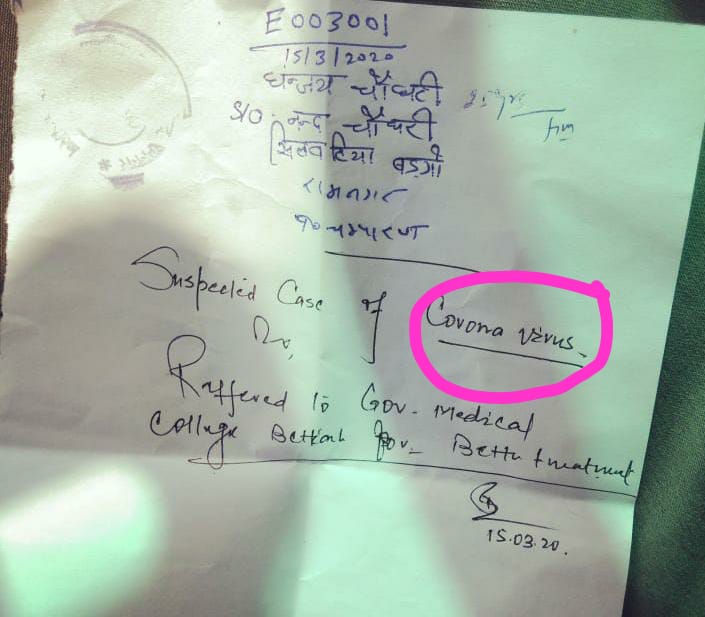 E003001
15/3/2020
धनंजय चौधरी
S/O - नन्द चौधरी
सिलवटिया बड़गो
रामनगर
प० चम्पारण
Suspected Case of Corona virus.
Reffered to Gov. Medical
College Bettiah for Better treatment
15.03.20.